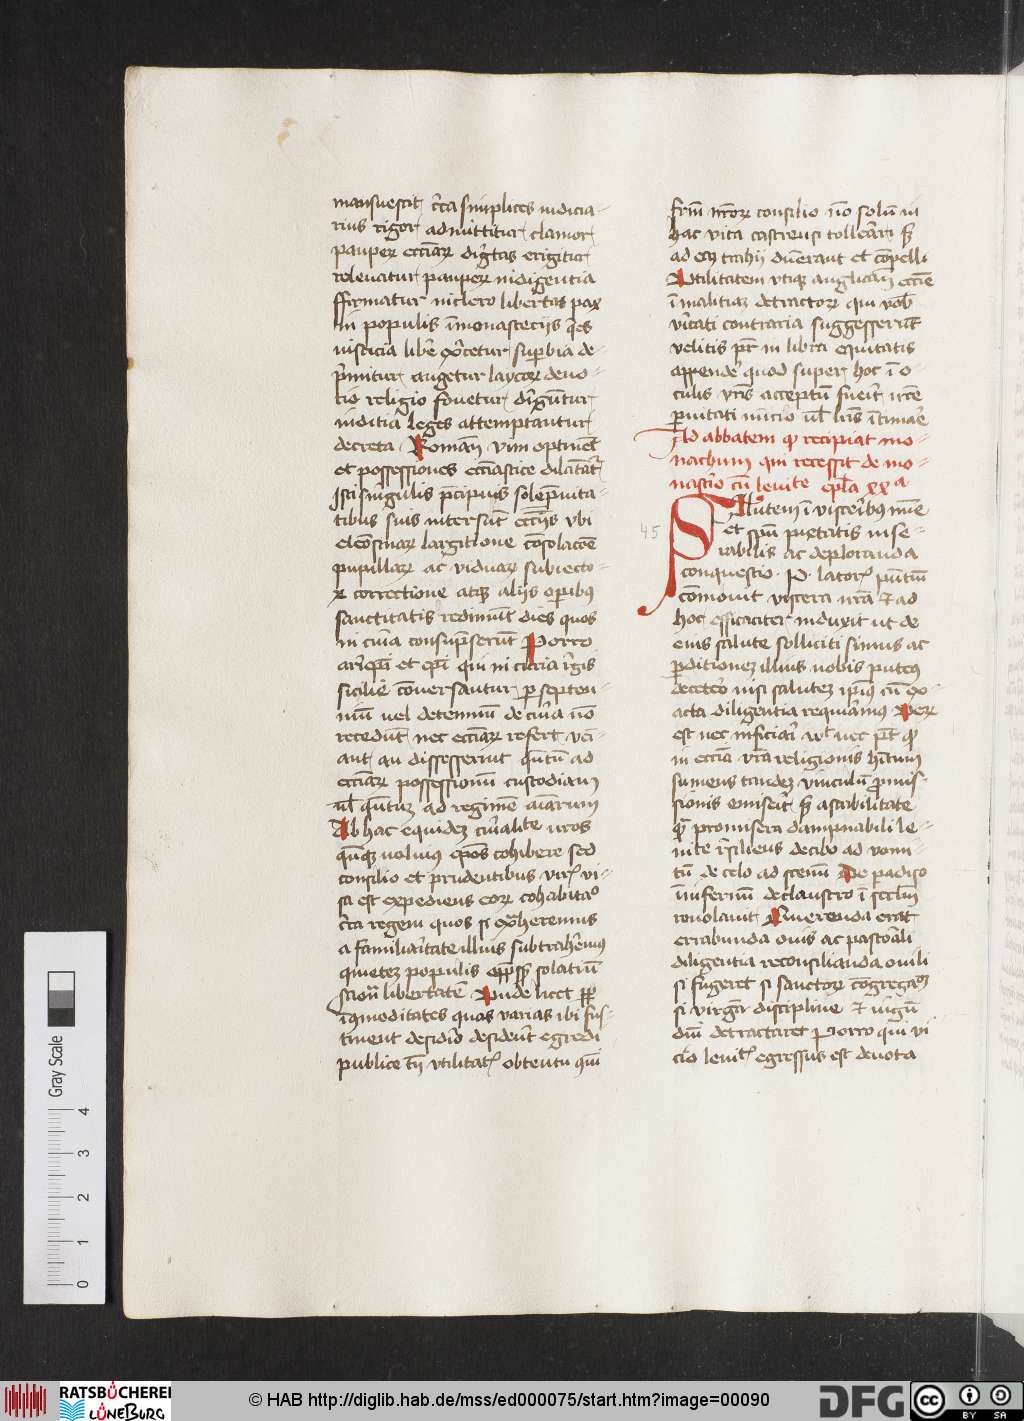 mansuescit, circa simplices iudicia-
rius rigor, admittitur, clamor,
pauperum ecclesiarum dignitas erigitur
relevatur, pauperum indigentia
ffirmatur in clero libertas pax
in populis in monasteriis quies
iusticia libere exercetur, superbia de-
primitur, augetur laycorum devo-
tio religio fovetur, diriguntur
iudicia leges attemptantur
decreta, Romana vim optinent
et possessiones ecclesiastice dilatantur
Isti singulis precipuis solempnita-
tibus suis intersunt ecclesiis ubi
elemosinarum largitione consolacione
pupillarum ac viduarum subiecto-
rum correctione atque aliis operibus
sanctitatis redimunt dies quos
in curia consumpserunt Porro
archiepiscopi et episcopi qui in curia regis
sicilie conversantur, per septen-
nium vel decennium de curia non
recedunt nec ecclesiarum refert
an dissesserint quantum ad
ecclesiarum possessionum custodiam
vel quantum ad regimen animarum
Ab hac equidem curialitate vestros
quamquam volumus episcopos cohibere sed
consilio et prudentibus viris vi-
sa est expediens eorum cohabitatio
circa regem quos si extraheremus
a familiaritate illius subtraheremus
quietem populis oppressis solatium
libertatem Unde licet propter
incommoditates quas varias ibi sus-
tinent desiderio desiderent egredi
publice tamen utilitatis obtentu qui
fratrum nostrorum consilio non solum in
hac vita castrensi tollerari sed
ad eam trahi duxerant et compelli
Utilitatem utique anglicane ecclesie
in malitiam detractorum qui vobis
veritati contraria suggesserunt
velitis pater in libra equitatis
appendere quod super, hoc in o-
culis vestris acceptum fuerit,
parvitati nuncio vel litteris intimare
Ad abbatem quod recipiat mo-
nachum qui recessit de mo-
nasterio cum levite epistola xxa
45
Salutem in visceribus misericordie
et spiritum pietatis mise-
rabilis ac deploranda
conquestio. P. latoris presentium
commovit viscera nostra et ad
hoc efficaciter induxit ut de
eius salute solliciti simus ac
perditionem illius nobis putemus
decetero nisi salutem ipsius cum ex-
acta diligentia requiramus Verum
est nec inficiari vult nec potest quod
in ecclesia vestra religionis habitum
sumens tandem vinculum promis-
sionis emiserit sed a stabilitate
quam promiserat dampnabili le-
vitate resiliens de cibo ad vomi-
tum de celo ad scenum De paradiso
in infernum de claustro in seculum
revolavit Querenda erat
errabunda ovis ac pastorali
diligentia reconsilianda ovili
si fugeret si sanctorum congregationem
si virgam discipline et iugum
domini detractaret Porro qui vi
cio levitatis egressus est devota
Gray Scale
4
3
2
1
0
RATSBÜCHEREI
LÜNEBURG
© HAB http://diglib.hab.de/mss/ed000075/start.htm?image=00090
DFG
cc
BY SA